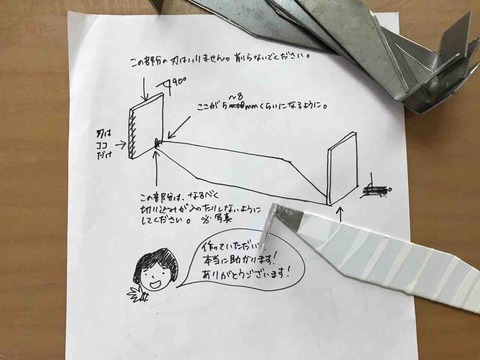 この部分の刃はいりません。削らないでください。
90°
~8
ここが5mmくらいになるように。
刃は
ココ
だけ
この部分は、なるべく
切り込みが入ったりしないように
してください。※写真
作っていただい
本当に助かります!
ありがとうございます!